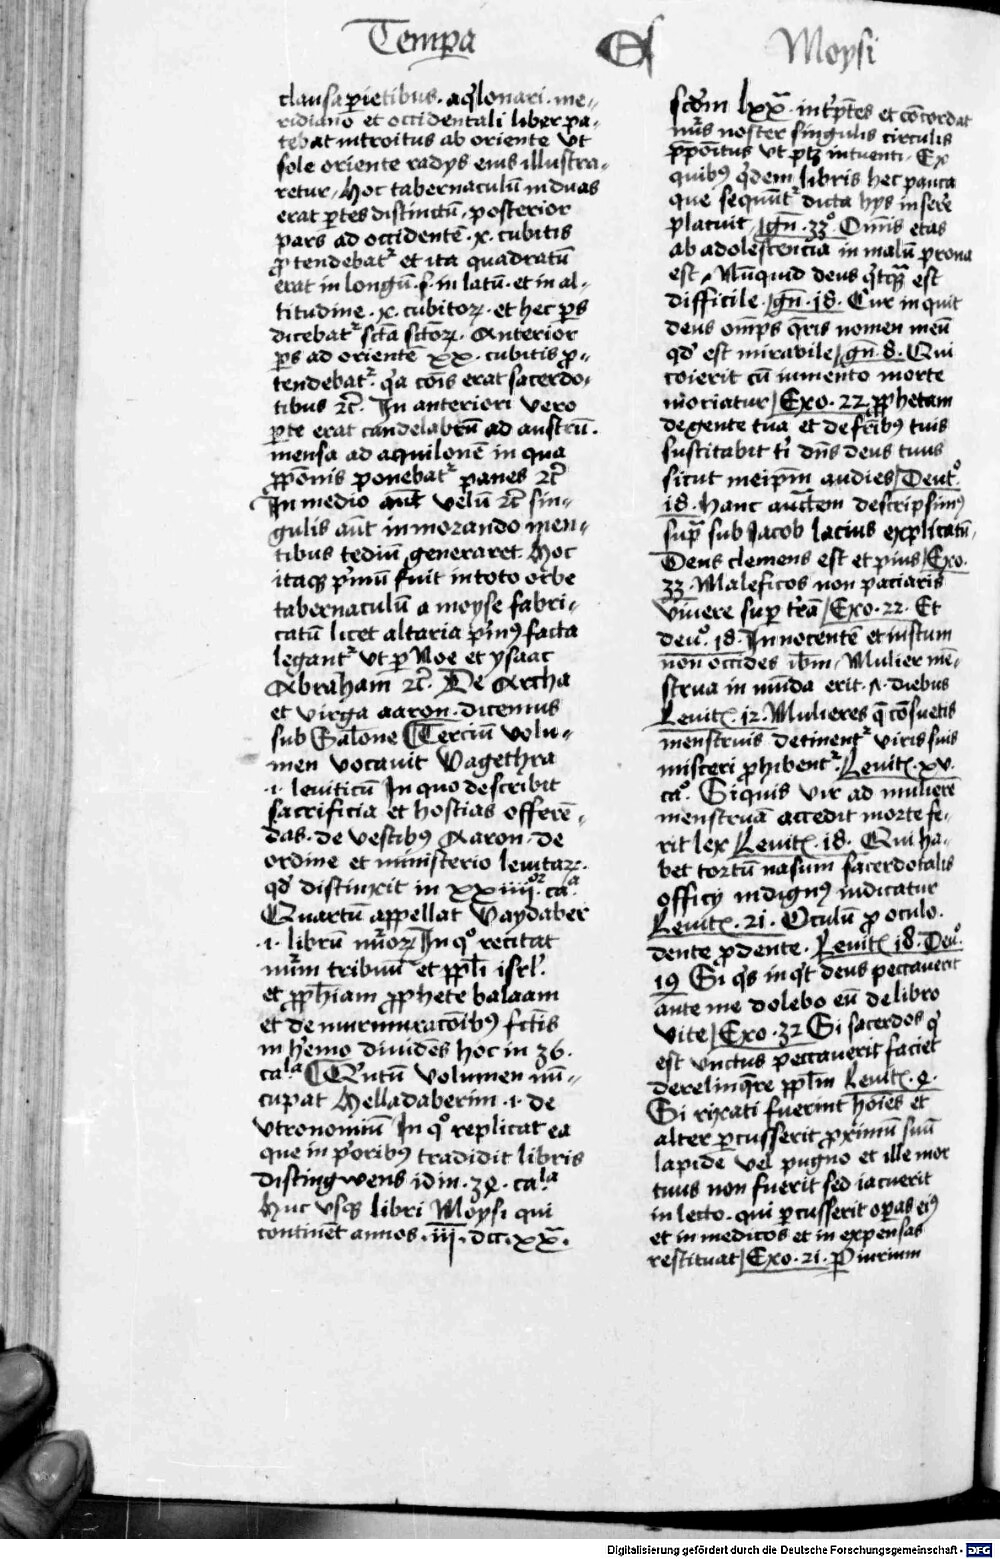 Tempa Moysi
clausa pietibus. aqlonari. me-
ridiano et occidentali liber pa-
tebat introitus ab oriente vt
sole oriente radys eius illustra-
retur, Hoc tabernaculū in duas
erat ptes distinctū, posterior
pars ad occidentē .x. cubitis
ptendebatr et ita quadratū
erat in longū .s. in latū. et in al-
titudine .x. cubitorꝝ. et hec ps
dicebatr scta sctorꝝ. Anterior
ps ad orientē xx. cubitis p-
tendebatr. qa cōis erat sacerdo-
tibus ⁊c̄. In anteriori vero
pte erat candelabrū ad austrū.
mensa ad aquilonē in qua
pp̄onis ponebatr panes ⁊c̄
In medio aūt velū ⁊c̄ sin-
gulis aūt in morando men-
tibus tediū generaret Hoc
itaqꝫ pmū fuit in toto orbe
tabernaculū a moyse fabri-
catū licet altaria pri9 facta
legantr vt p Noe et ysaac
Abraham ⁊c̄. De Archa
et virga aaron. dicemus
sub Salone Terciū volu-
men vocauit Vagethra
.i. leuiticū In quo describit
sacrificia et hostias offerē-
das. de vestib9 Aaron. de
ordine et ministerio leuitarꝝ.
qd distinxit in xxiiij or. ca a
Quartū appellat Vaydaber
.i. librū nūorꝝ In qo recitat
nūm tribuū et pp̄li isrl.
et pp̄hiam pp̄hete balaam
et de murmuracōib9 fctis
in hemo diuidēs hoc in 36.
ca la Qntū volumen nū-
cupat Helladaberim .i. de
vtronomiū In qo replicat ea
que in porib9 tradidit libris
distingwens idm. 34. ca la
Huc vsqꝫ libri Moysi qui
continēt annos. iij. dcc. xx.
scdm lxx. intptes et cōcordat
nūs noster singulis circulis
pp̄oitus vt ptꝫ intuenti. Ex
quib9 qdem libris hec pauca
que sequūtr dicta hys insere
placuit, gn. 33o. Omis etas
ab adolescencia in malū prona
est. Nūquid deus qcqꝫ est
difficile gn. 18. Cur inquit
deus omps qris nomen meū
qd est mirabile gn. 8. Qui
coierit cū iumento morte
moriatur Exo. 22. pp̄hetam
de gente tua et de frib9 tuis
suscitabit ti dns deus tuus
sicut meipm audies Deuto.
18. Hanc auctem descripsim9
supra sub Jacob lacius explicatū.
Deus clemens est et pius Exo.
33. Maleficos non paciaris
viuere sup trā Exo. 22. Et
deuo. 18. Innocentē et iustum
non occides ibm. Mulier mē-
strua inmūda erit .7. diebus
Leuit. 12. Mulieres q cōsuetis
menstruis detinentr viris suis
misceri phibentr. Leuit. xv.
cao. Siquis vir ad mulierē
menstruā accedit morte fe-
rit lex Leuit. 18. Qui ha-
bet tortū nasum sacerdotalis
officy indign9 iudicatur
Leuit. 21. Oculū p oculo.
dente p dente. Leuit 18. Deuo.
19 Si qs inqt deus peccauerit
ante me dolebo eū de libro
vite Exo. 32 Si sacerdos q
est vnctus peccauerit faciet
derelinqre pp̄lm Leuit. 4.
Si rixati fuerint hoies et
alter pcusserit proximū suū
lapide vel pugno et ille mor
tuus non fuerit sed iacuerit
in lecto. qui pcusserit opas ei9
et in medicos et in expensas
restituat Exo. 21. Piurium
Digitalisierung gefördert durch die Deutsche Forschungsgemeinschaft - DFG